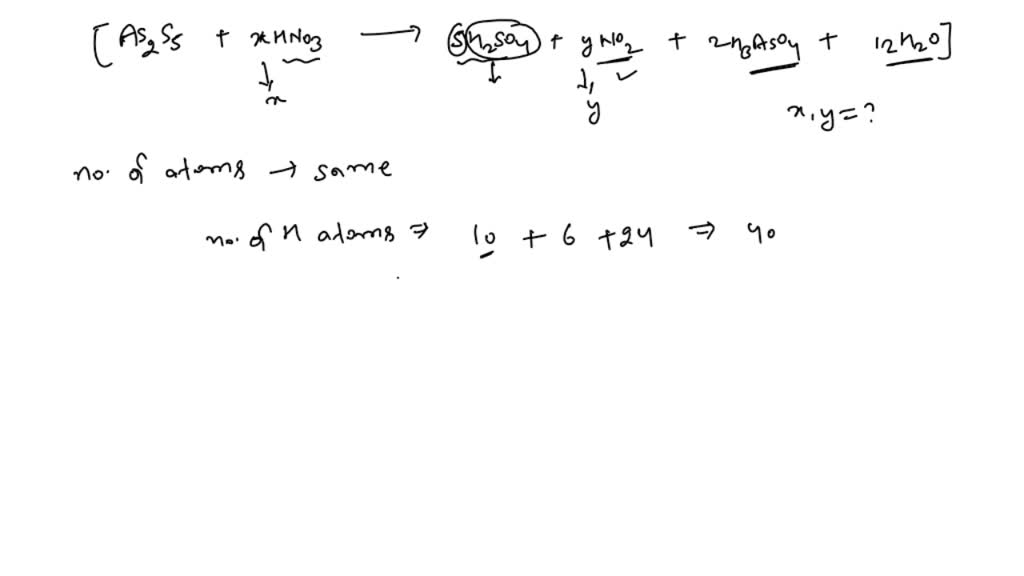 [As2S5 + xHNO3 → 5H2SO4 + yNO2 + 2H3AsO4 + 12H2O]
↓ ↓ ↓ ✓
x y
x, y = ?
no. of atoms → same
no. of H atoms ⇒ 10 + 6 + 24 ⇒ 40